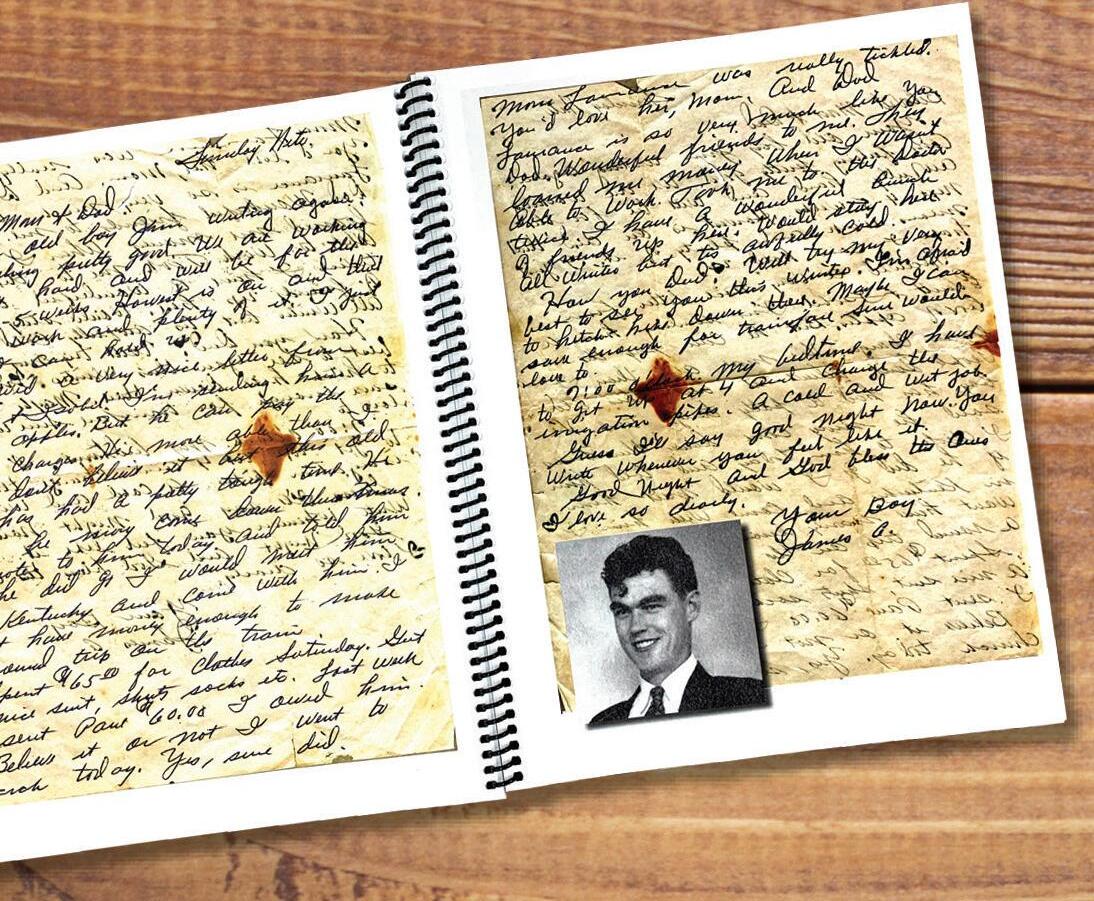 Sunday Nite
Mom & Dad.
old boy Jim writing again.
pretty good. We are working
hard and will be for the
5 weeks. Harvest is on and that
work and plenty of it. I just
can hold up.
a very nice letter from
I'm sending him a
apples. But he can pay the
charges. He's more able than I
don't believe it but this old
has had a pretty tough time. He
he may come down Christmas.
to him today and told him
he did go I would meet him
Kentucky and come with him I
t have money enough to make
ound trip on the train
pent $65.00 for clothes Saturday. Got
nice suit, shirts socks etc. Last week
sent Paul $60.00 I owed him.
Believe it or not I went to
rch today. Yes, sure did.
Mom was really tickled.
You'd love her, Mom And Dad
is so very much like you
Dad. Wonderful friends to me. They
loaned me money when I wasn't
able to work Took me to the Doctor
twice. I have a wonderful bunch
of friends up here. Would stay here
all winter but its awfully cold.
How you Dad? Will try my very
best to see you this winter. I'm afraid
to hitch hike down there. Maybe I can
save enough for train fare. Sure would
love to
9:00 o'clock My bedtime. I have
to get up at 4 and change the
irrigation pipes. A cold and wet job
Guess I'll say good night now. You
write whenever you feel like it.
Good Night And God bless the ones
I love so dearly.
Your Boy
James A.